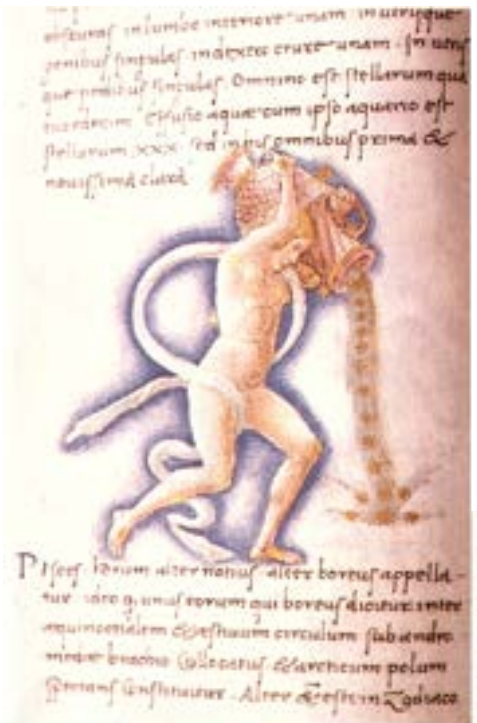 obscuras in lumbo interiore unam. in utrisque
genibus singulas in dextro crure unam. In utris
que pedibus singulas. Omnino est stellarum qua
tuordecim. Effusio aquae cum ipso aquario est
stellarum xxx. sed in his omnibus prima &
novissima clara
Pisces horum alter notius alter boreus appella-
tur ideo q; unus eorum qui boreus dicitur inter
aequinoctialem & aestiuum circulum sub andro
medae brachio collocatus & arcticum polum
spectans constituitur. Alter & est in zodiaco